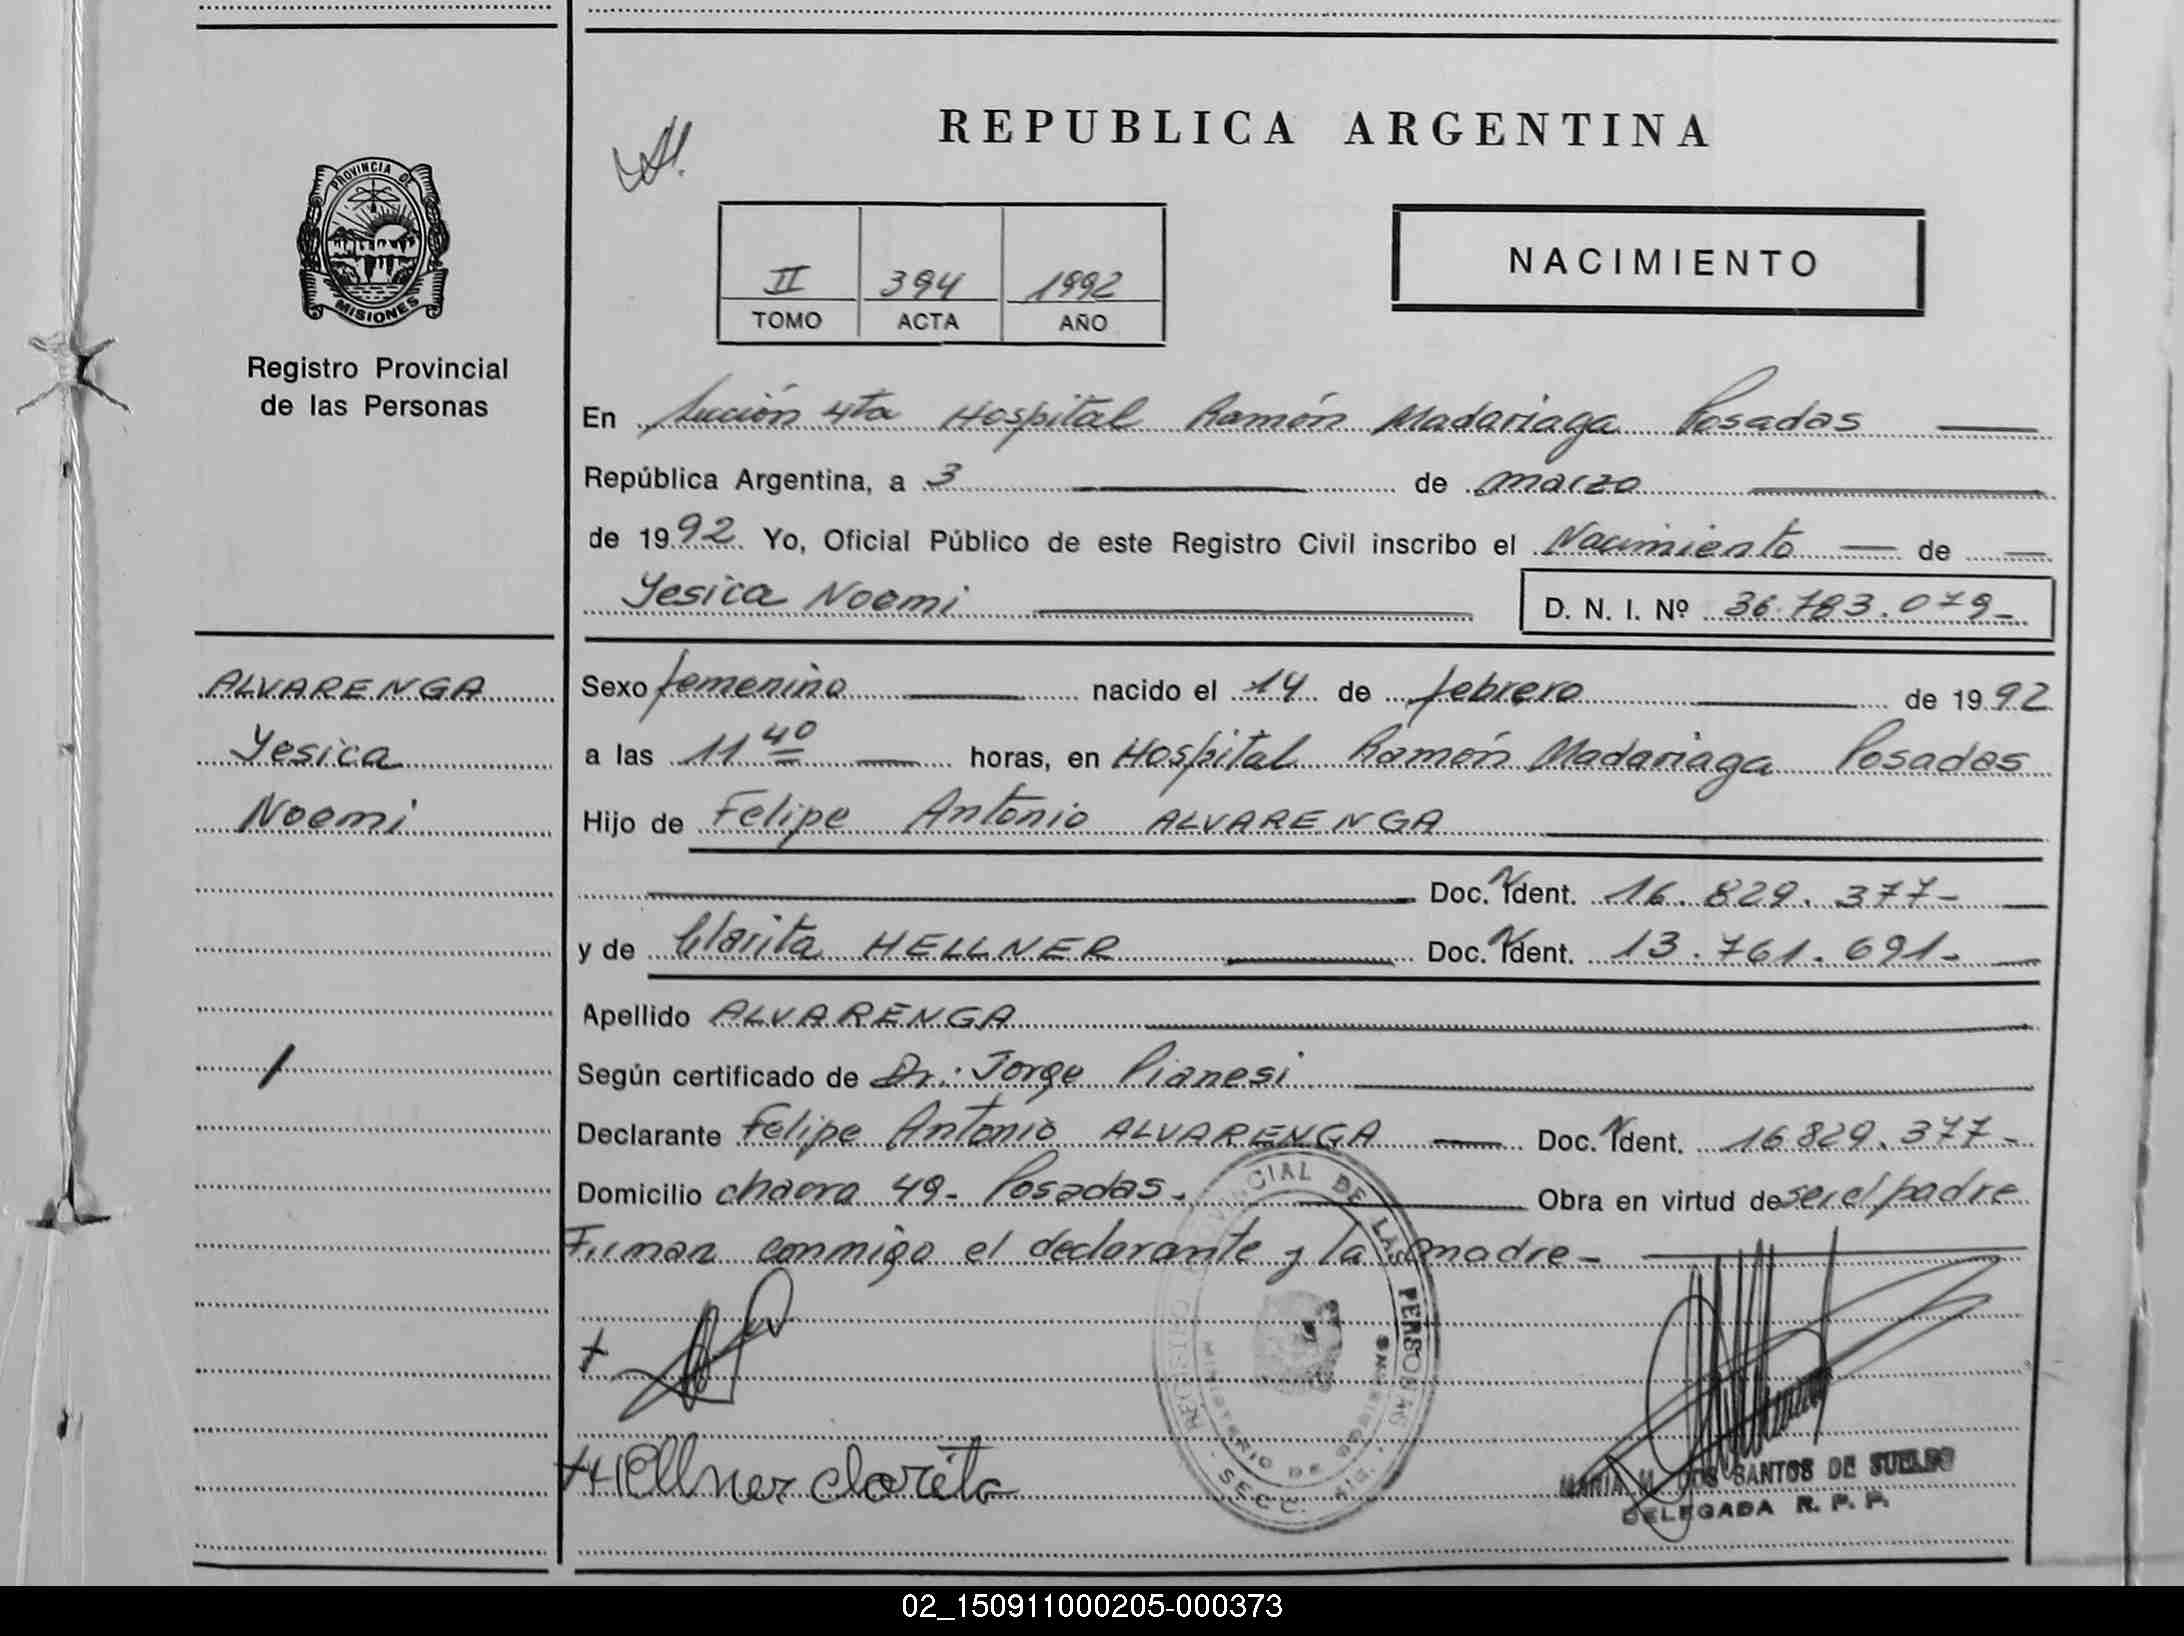 REPUBLICA ARGENTINA
PROVINCIA DE
MISIONES
Registro Provincial
de las Personas
II 394 1992
TOMO ACTA AÑO
NACIMIENTO
En Sección 4ta Hospital Ramón Madariaga Posadas
República Argentina, a 3 de marzo
de 1992. Yo, Oficial Público de este Registro Civil inscribo el Nacimiento de
Yesica Noemi D. N. I. Nº 36.783.079-
ALVARENGA
Yesica
Noemi
Sexo femenino nacido el 14 de febrero de 1992
a las 11 40 horas, en Hospital Ramón Madariaga Posadas
Hijo de Felipe Antonio ALVARENGA
Doc. Ident. 16.829.377-
y de Clarita HELLNER Doc. Ident. 13.761.691-
Apellido ALVARENGA
Según certificado de Dr.: Jorge Pianesi
Declarante Felipe Antonio ALVARENGA Doc. Ident. 16829.377-
Domicilio chacra 49- Posadas. Obra en virtud de ser el padre
Firman conmigo el declarante y la madre-
REGISTRO PROVINCIAL DE LAS PERSONAS
MINISTERIO DE
SECC.
Hellner clarita
MARIA M. DOS SANTOS DE SUELDO
DELEGADA R. P. P.
02_150911000205-000373